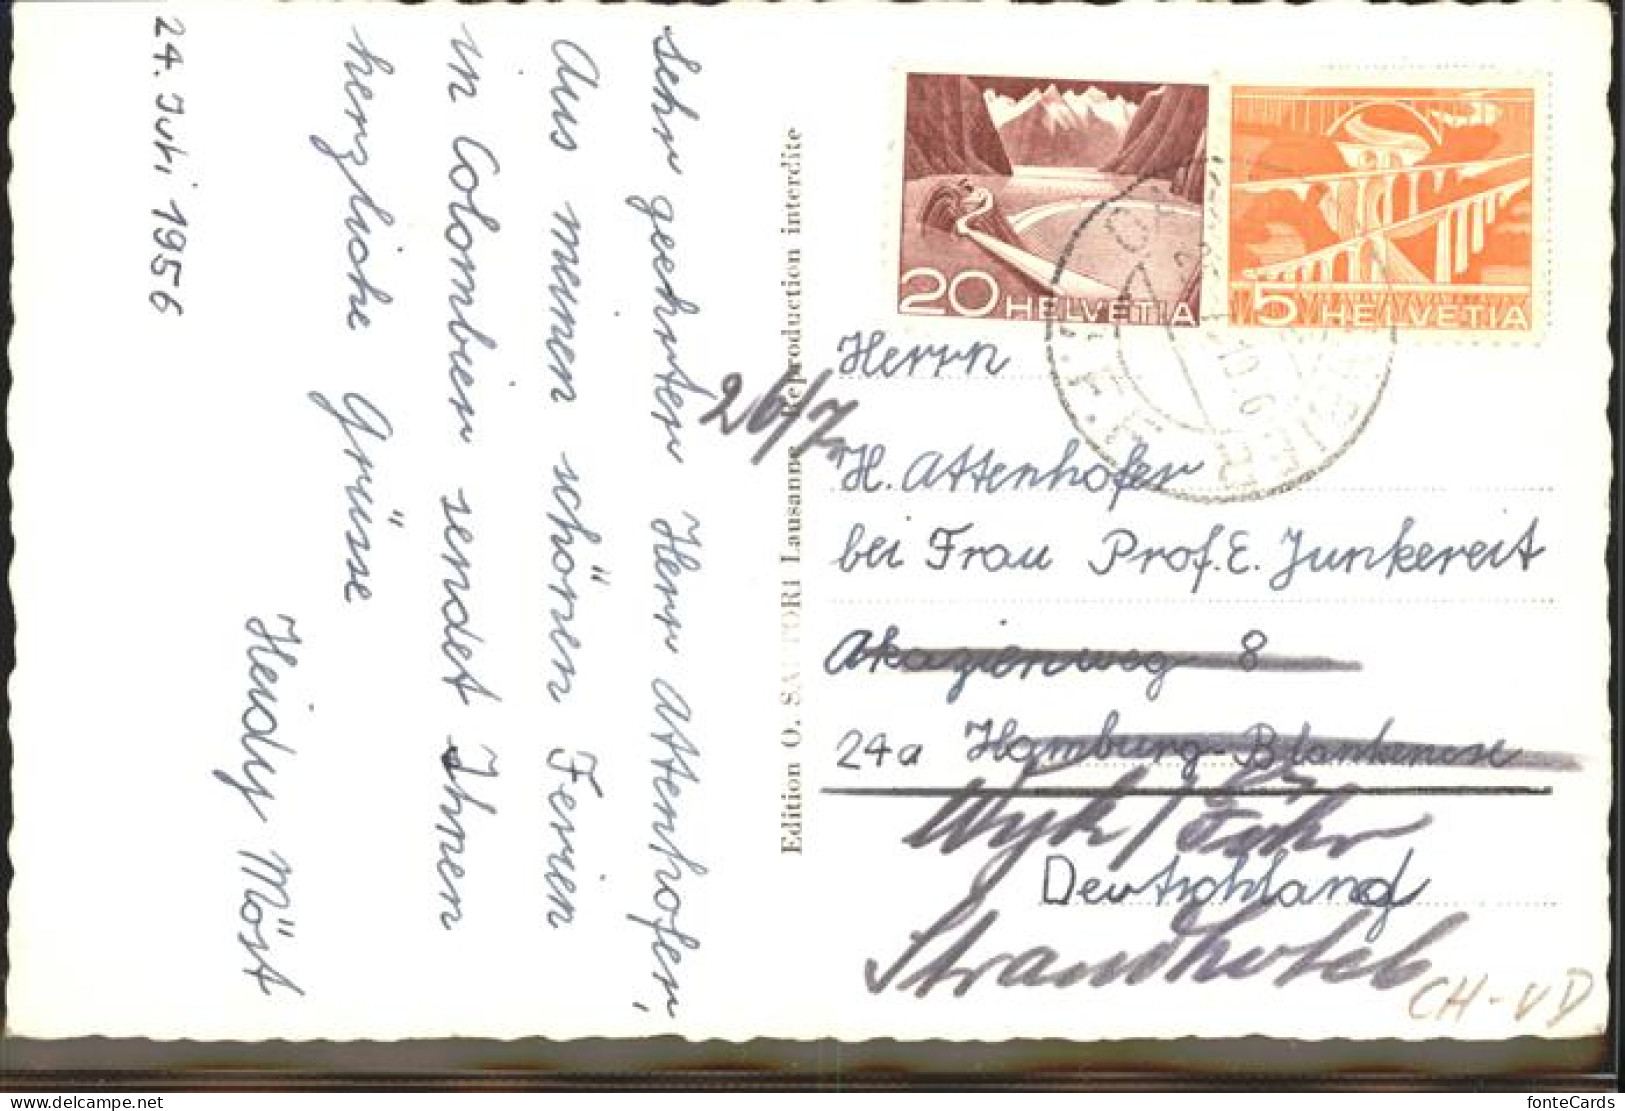 24. Juli 1956
Sehr geehrter Herr Attenhofer,
Aus meinen schönen Ferien
in Colombier sendet Ihnen
herzliche Grüsse
Heidy Möst
Edition O. SARTORI Lausanne Reproduction interdite
26/7
20 HELVETIA
5 HELVETIA
Herrn
H. Attenhofer
bei Frau Prof. E. Junkereit
Akazienweg 8
24a Hamburg-Blankenese
Wyk / Föhr
Deutschland
Strandhotel
CH-VD
fonteCards